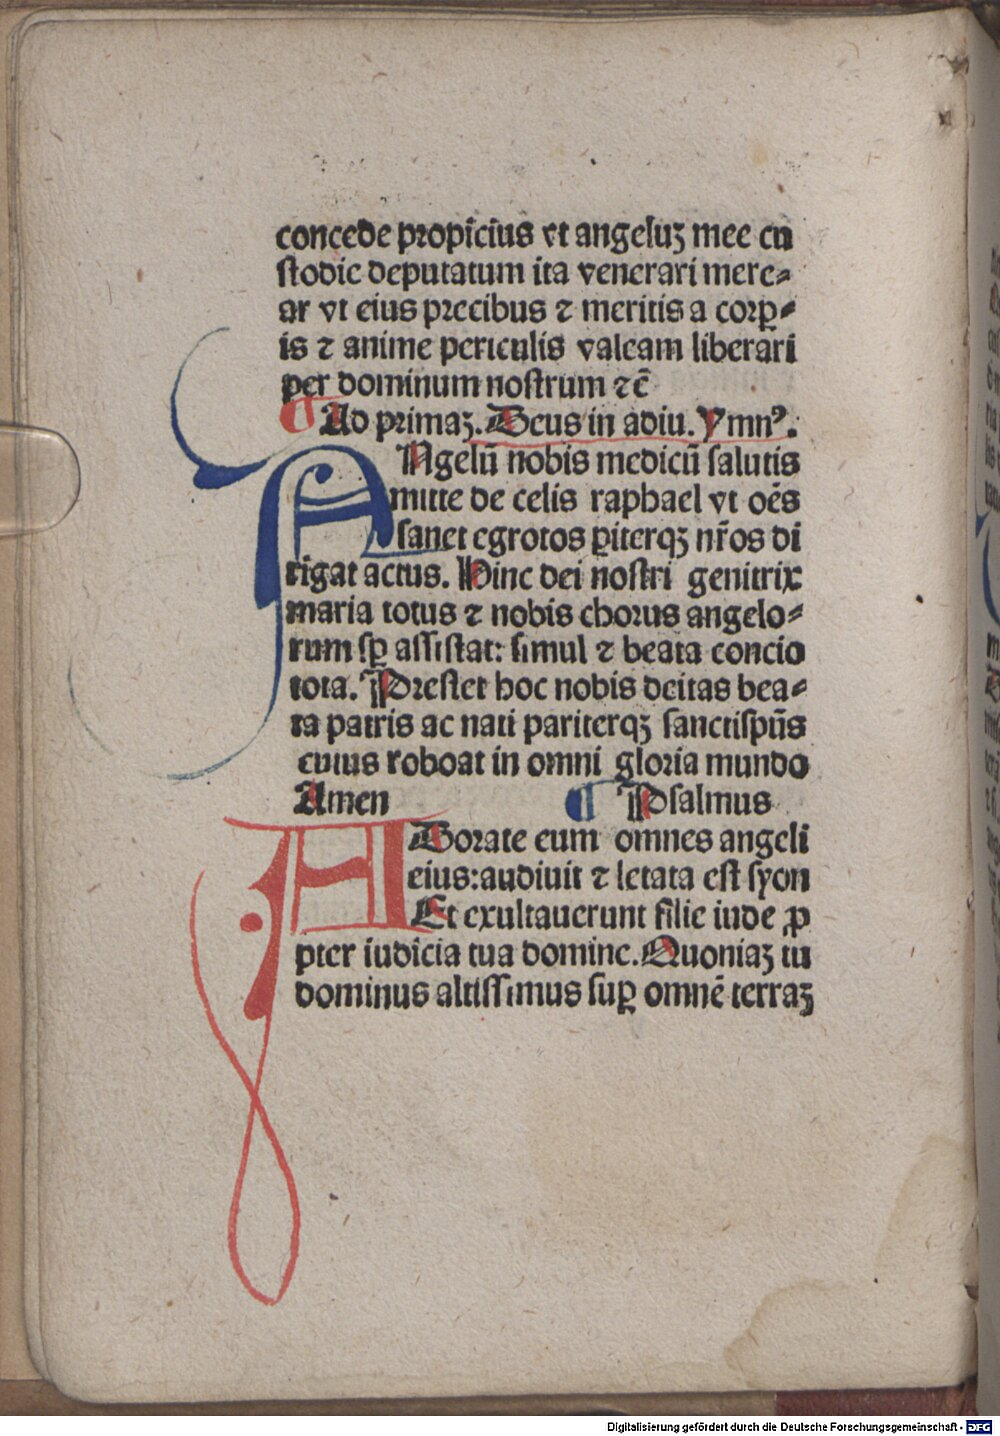 concede propicius vt angeluʒ mee cu
stodie deputatum ita venerari mere⸗
ar vt eius precibus ⁊ meritis a corꝑ⸗
is ⁊ anime periculis valeam liberari
per dominum nostrum ⁊cē
¶ Ad primaʒ. Deus in adiu. Ymnꝰ.
ANgelū nobis medicū salutis
mitte de celis raphael vt oēs
sanet egrotos ꝑiterqʒ nr̄os di
rigat actus. Hinc dei nostri genitrix
maria totus ⁊ nobis chorus angelo⸗
rum sꝑ assistat: simul ⁊ beata concio
tota. Prestet hoc nobis deitas bea⸗
ta patris ac nati pariterqʒ sanctispūs
cuius roboat in omni gloria mundo
Amen ¶ Psalmus
ADorate eum omnes angeli
eius: audiuit ⁊ letata est syon
Et exultauerunt filie iude ꝓ
pter iudicia tua domine. Quoniaʒ tu
dominus altissimus suꝑ omnē terraʒ
Digitalisierung gefördert durch die Deutsche Forschungsgemeinschaft - DFG